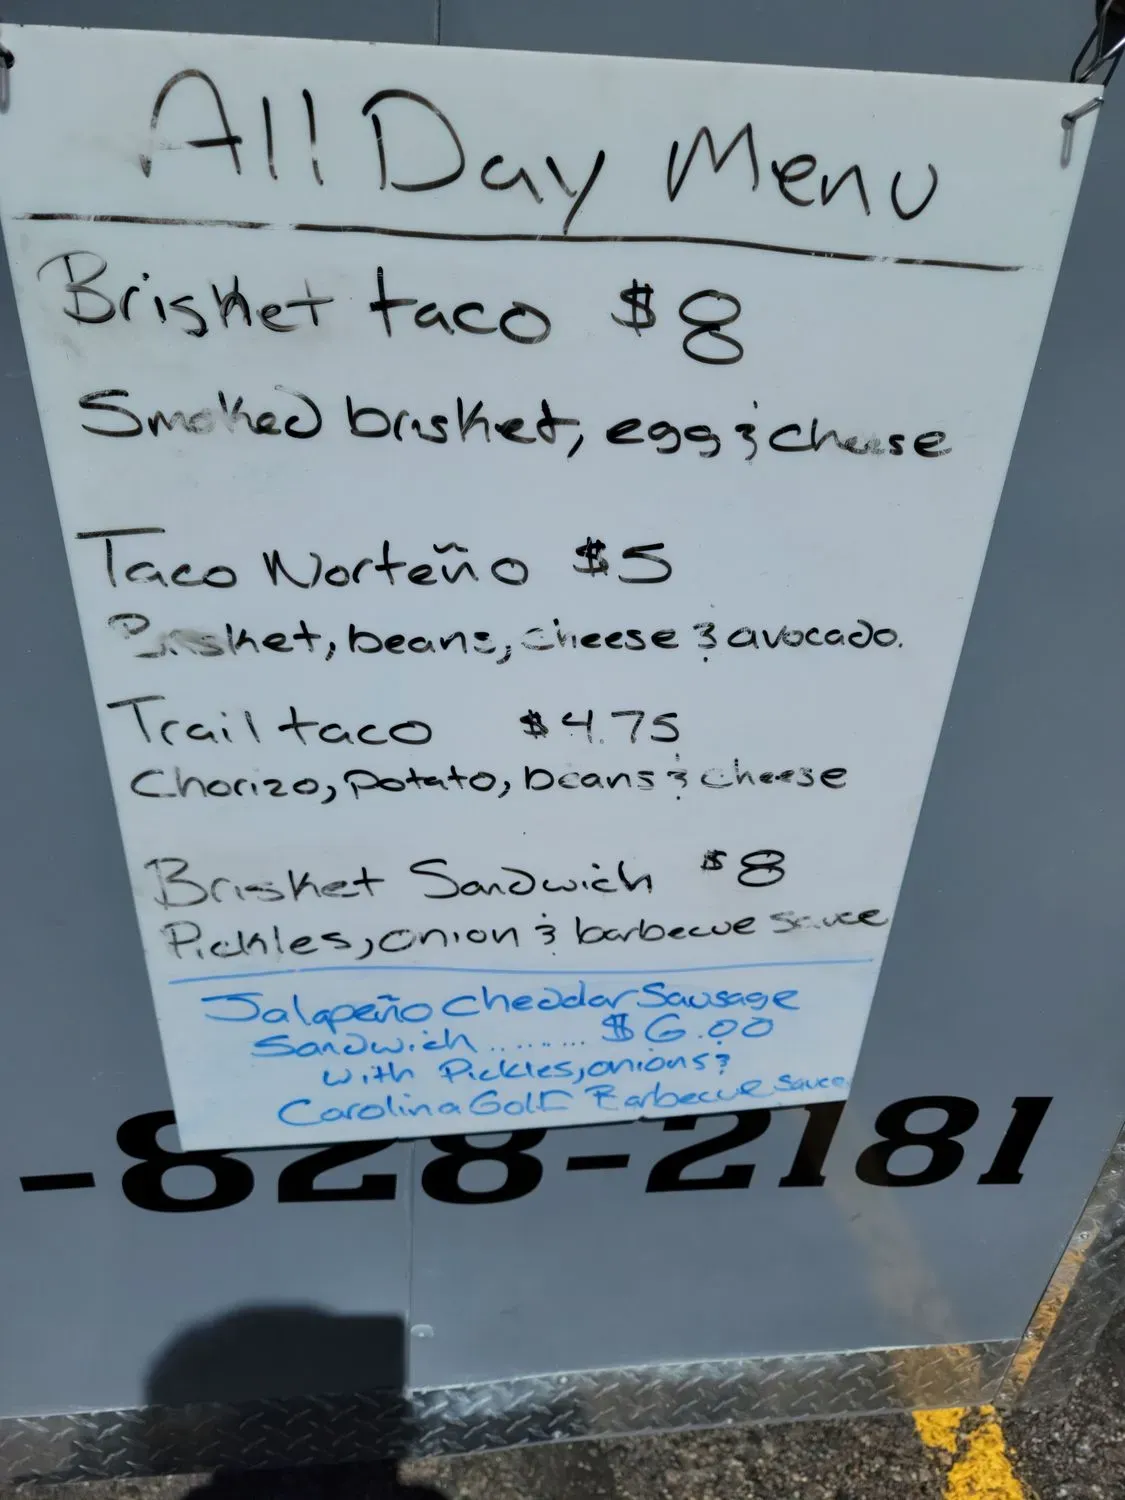 All Day Menu
Brisket taco $8
Smoked brisket, egg & cheese
Taco Norteño $5
Brisket, beans, cheese & avocado.
Trail taco $4.75
Chorizo, potato, beans & cheese
Brisket Sandwich $8
Pickles, onion & barbecue sauce
Jalapeño Cheddar Sausage
Sandwich ........ $6.00
with Pickles, onions &
Carolina Golf Barbecue sauce
-828-2181